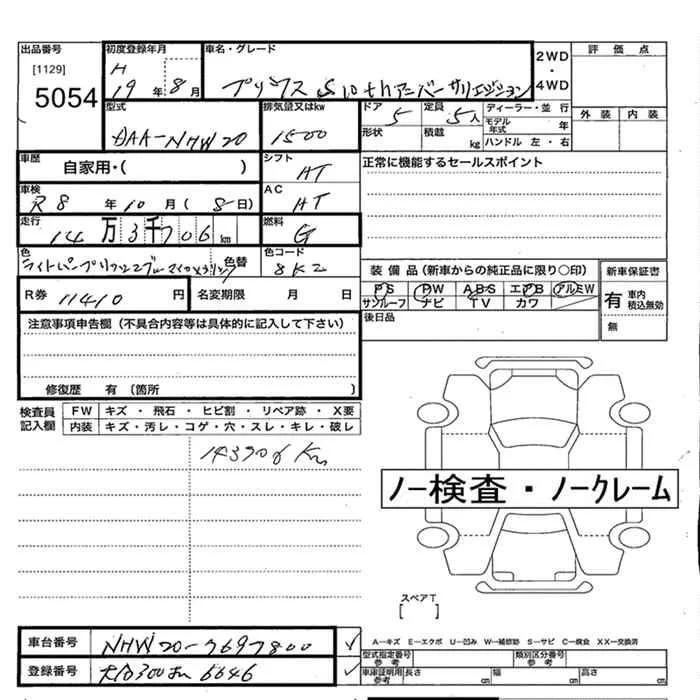 出品番号 初度登録年月 車名・グレード 2WD・4WD 評価点
[1129] 5054
H 19年 8月
プリウス S 10thアニバーサリーエディション
外装 内装
型式 排気量又はkw ドア 定員 ディーラー・並行
DAA-NHW20 1500 5 5人
モデル年式 年
形状 積載 kg ハンドル 左・右
車歴 自家用・( ) シフト AT 正常に機能するセールスポイント
車検 R8年10月(8日) AC
走行 14万3千706km 燃料 G
色 色替 色コード 8K2
装備品(新車からの純正品に限り○印) 新車保証書
PS PW ABS エアB アルミW
サンルーフ ナビ TV カワ
有 車内 積込無効
無
R券 11410円 名変期限 月 日
後日品
注意事項申告欄(不具合内容等は具体的に記入して下さい)
修復歴 有 (箇所 )
検査員記入欄
FW キズ・飛石・ヒビ割・リペア跡・X要
内装 キズ・汚レ・コゲ・穴・スレ・キレ・破レ
143706Km
ノー検査・ノークレーム
スペアT
[ ]
A-キズ E-エクボ U-凹み W-補修跡 S-サビ C-腐食 XX-交換済
車台番号 NHW20-7697800
型式指定番号 参考 類別区分番号 参考
登録番号 6646
車庫証明用 参考 長さ cm 幅 cm 高さ cm